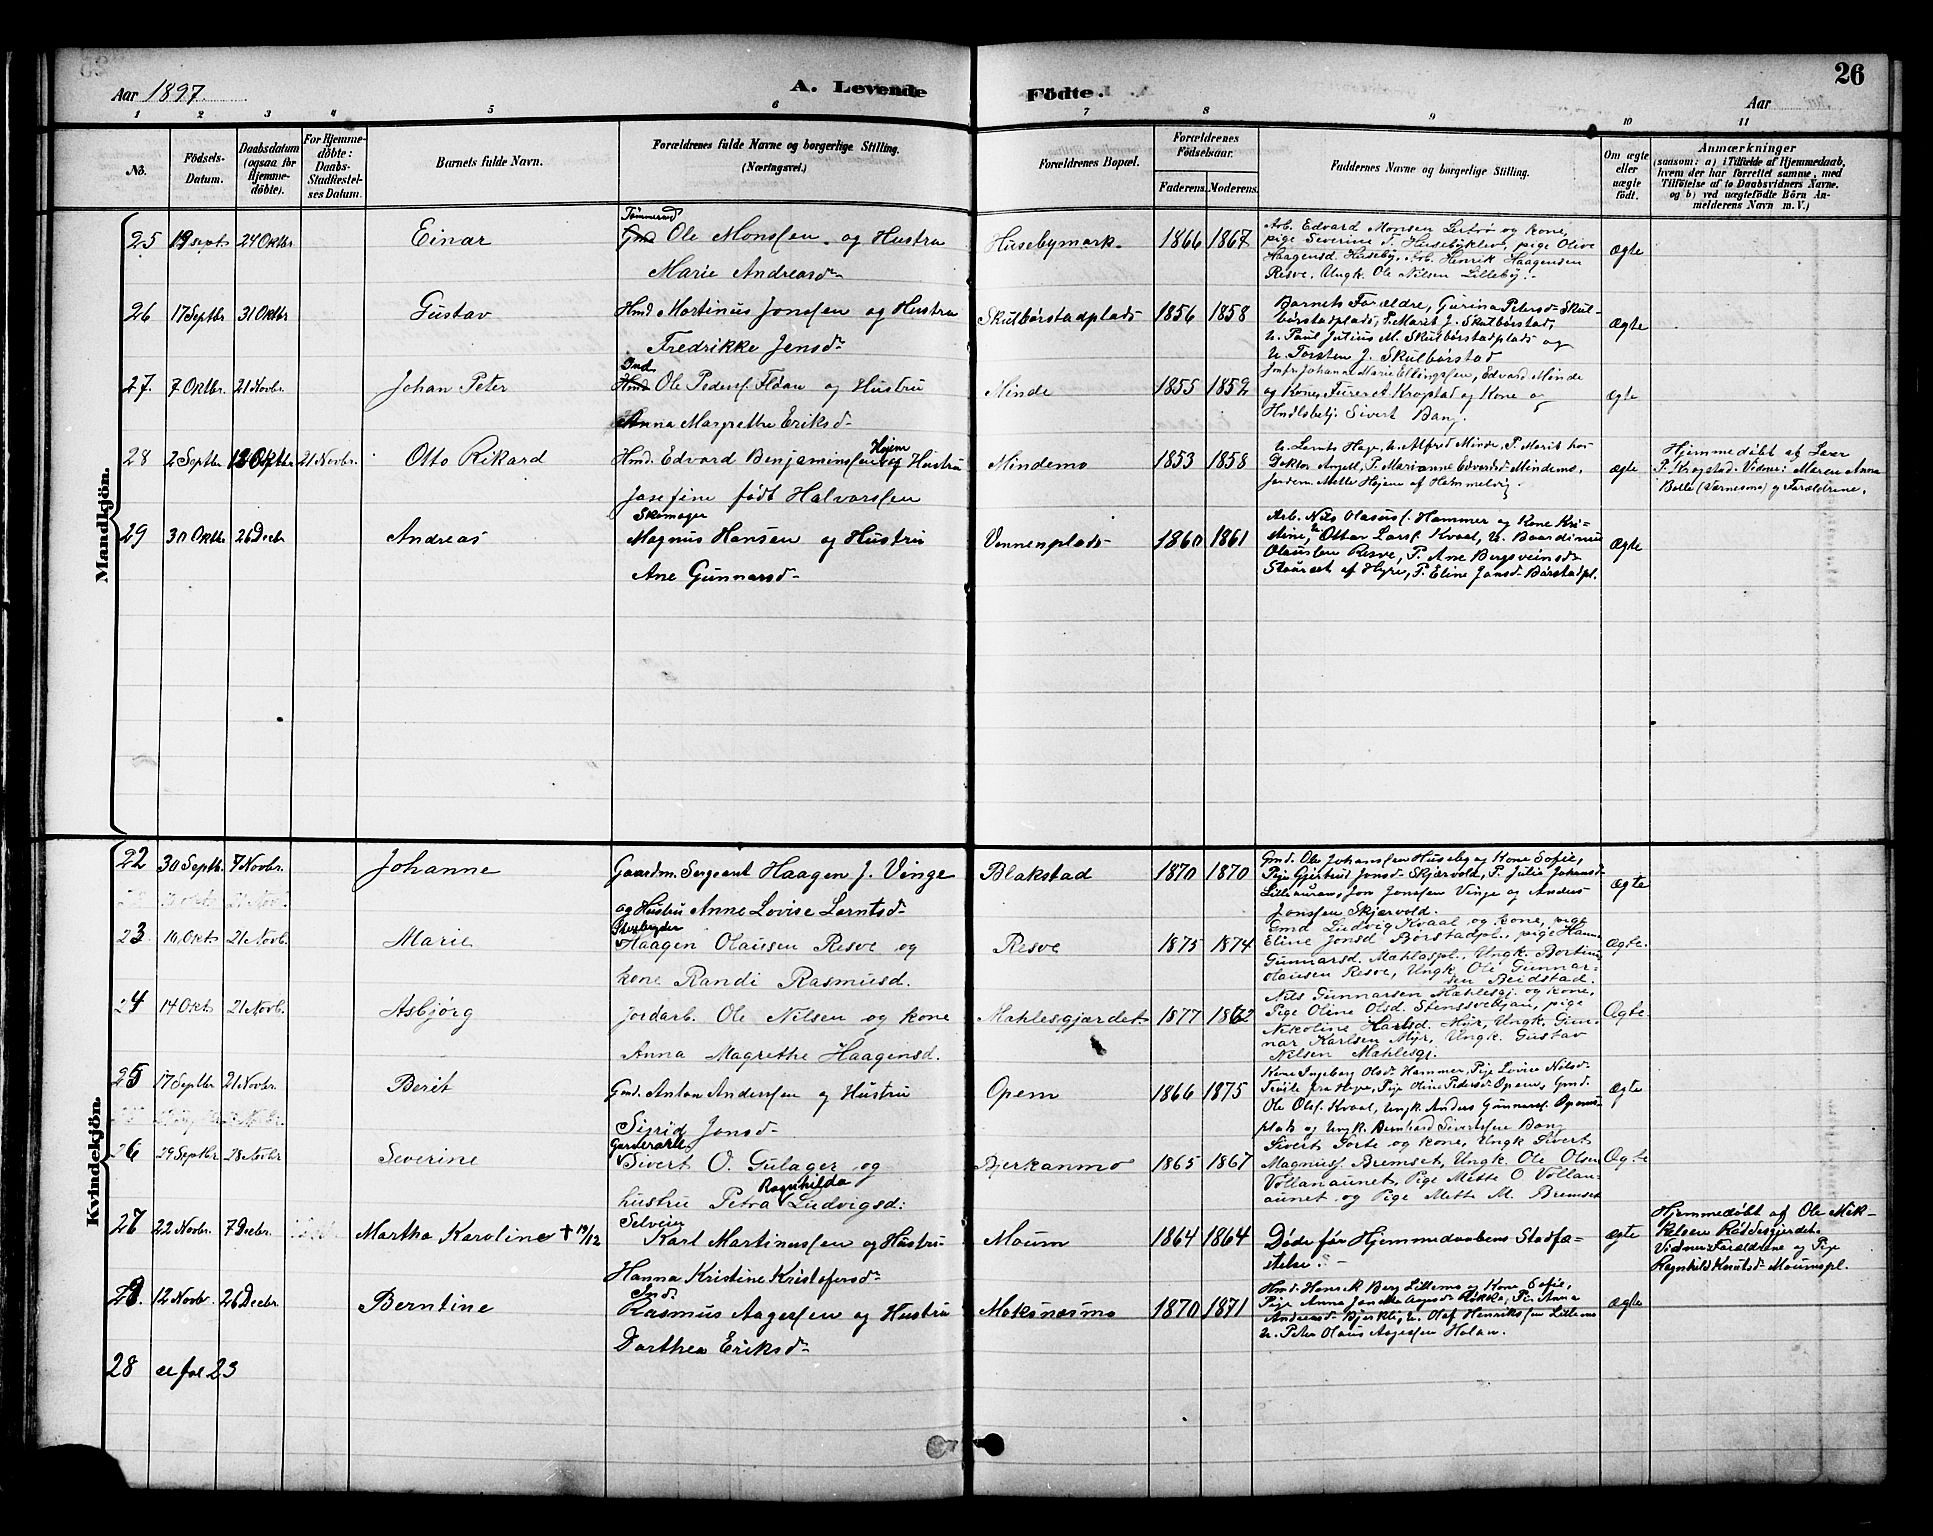 26
Aar 1897.
A. Levende Födte.
Aar
1 2 3 4 5 6 7 8 9 10 11
No.
Födsels-Datum.
Daabsdatum (ogsaa for Hjemmedöbte).
For Hjemmedöbte: Daabs-Stadfæstelses Datum.
Barnets fulde Navn.
Forældrenes fulde Navne og borgerlige Stilling.
(Næringsvei.)
Forældrenes Bopæl.
Forældrenes Födselsaar.
Faderens. Moderens.
Faddernes Navne og borgerlige Stilling.
Om ægte eller uægte födt.
Anmærkninger
(saasom: a) i Tilfælde af Hjemmedaab,
hvem der har forrettet samme, med
Tilföielse af to Daabsvidners Navne,
og b) ved uægtefödte Börn An-
melderens Navn m. V.)
Mandkjön.
25 19 Sept. 24 Oktbr Einar
Ole Monsen og Hustru
Marie Andreasd.
Husebymark. 1866 1867
Arb. Edvard Monsen og Kone,
pige Severine T. Husebykleiv, pige Olive
Haagensd. Huseby, Arb. Henrik Haagensen
Resve, Ungk. Ole Nilsen Lilleby.
Ægte
26 17 Septbr 31 Oktbr Gustav
Hmd Martinus Jonssen og Hustru
Fredrikke Jensd.
Skulbørstadplads 1856 1858
Barnets Forældre, Gurina Petersd. Skul-
børstadplads, P. Marit J. Skulbørstad,
U. Paul Julius M. Skulbørstadplads og
U. Torsten J. Skulbørstad
Ægte
27. 7 Oktbr. 21 Novbr. Johan Peter
Ind.
Hmd Ole Peders. Fløan og Hustru
Anna Margrethe Eriksd.
Minde 1855 1852
Jmfr. Johanna Marie Ellingsen, Edvard Minde
og Kone, Krogstad og Kone og
Hndlsbetj. Sivert Bang.
ægte
28 2 Septbr 12 Septbr 21 Novbr. Otto Rikard
Hmd. Edvard Benjaminsen Hojem og Hustru
Josefine født Halvorssen
Mindemo 1853 1858
U. Lornts Hage, U. Alfred Minde, P. Marit hos
Doktor Angell, P. Marianne Edvardsd. Mindemo,
Jordem. Mette Hojem af Hommelvig.
ægte
Hjemmedøbt af Lærer
P. Krogstad. Vidner: Maren Anna
Bolle (Værnesmo) og Forældrene.
29 30 Oktbr 26 Decbr Andreas
Skomager
Magnus Hansen og Hustru
Ane Gunnarsd.
Vennenplads 1860 1861
Arb. Nils Olausf. Hammer og Kone Kri-
stine, U. Ottar Larsf. Kvaal, U. Baardinus
Olaussen Resve, P. Ane Bergsveinsd.
Stauran af Hyre, P. Eline Jonsd. Børstadpl.
Ægte
Kvindekjön.
22 30 Septb. 7 Novbr. Johanne
Gaardm. Sergeant Haagen J. Vinge
og Hustru Anne Lovise Lorntsd.
Blakstad 1870 1870
Gmd. Ole Johanssen Huseby og Kone Sofie,
Pige Gjertrud Jonsd. Skjærvold, P. Julie Johansd.
Lilleauran, Jon Jonssen Vinge og Anders
Jonssen Skjærvold.
Ægte
23 10 Okt. 21 Novb. Marie
Haagen Olausen Resve og
kone Randi Rasmusd.
Resve 1875 1874
Gmd Ludvig Kvaal og kone, pige
Eline Jonsd Børstadpl., pige Hanna
Gunnarsd. Mæhlaspl., Ungk. Bortinus
Olausen Resve, Ungk. Ole Gunnar-
sen Beidstad.
Ægte.
24 14 Okt 21 Novb. Asbjørg
Jordarb. Ole Nilsen og kone
Anna Magrethe Haagensd.
Mæhlesgjærdet 1877 1862
Nils Gunnarsen Mæhlesgj. og kone,
Pige Oline Olsd. Stenssvebjan, pige
Nikoline Karlsd. Myr, Ungk. Gun-
nar Karlsen Myr, Ungk. Gustav
Nilsen Mæhlesgj.
Ægte.
25 17 Septbr 21 Novbr. Berit
Gmd. Anton Anderssen og Hustru
Sigrid Jonsd.
Opem 1866 1875
Kone Ingeborg Olsd. Hammer, Pige Lovise Nilsd.
Trøite fra Hage, Pige Oline Pedersd. Opem, Gmd.
Ole Olsf. Kvaal, Ungk. Anders Gunnarsf. Opems-
plads og Ungk. Bernhard Sivertsen Bang
Ægte
26 29 Septbr 28 Novbr Severine
Garderarbl.
Sivert O. Gulager og
hustru Petra Ragnhilda Ludvigsd.
Bjerkanmo 1865 1867
Sivert Forte og kone, Ungk Sivert
Magnusf. Bremset, Ungk. Ole Olsen
Vollanaunet, Pige Mette O Vollan-
aunet og Pige Mette M. Bremset
Ægte
27 22 Novbr. 7 Decbr. Martha Karoline † 19/12
Selveier
Karl Martinussen og Hustru
Hanna Kristine Kristofersd.
Moum 1864 1864
Døde før Hjemmedaabens Stadfæ-
stelse.
ægte
Hjemmedøbt af Ole Mik-
kelsen Røddesgjerdet.
Vidner: Forældrene og Pige
Ragnhild Knutsd. Moumspl.
29. 12 Novb. 26 Decbr. Berntine
Ind.
Rasmus Aagessen og Hustru
Dorthea Eriksd.
Moksnesmo 1870 1871
Hmd. Henrik Berg Lillemo og Kone Sofie,
Pige Anna Jonetta Aagesd. Røkke, P. Anna
Andreasd. Bjerkli, U. Olaf Henrikssen Lillemo
U. Peter Olaus Aagessen Holan.
ægte
28 se fol 23